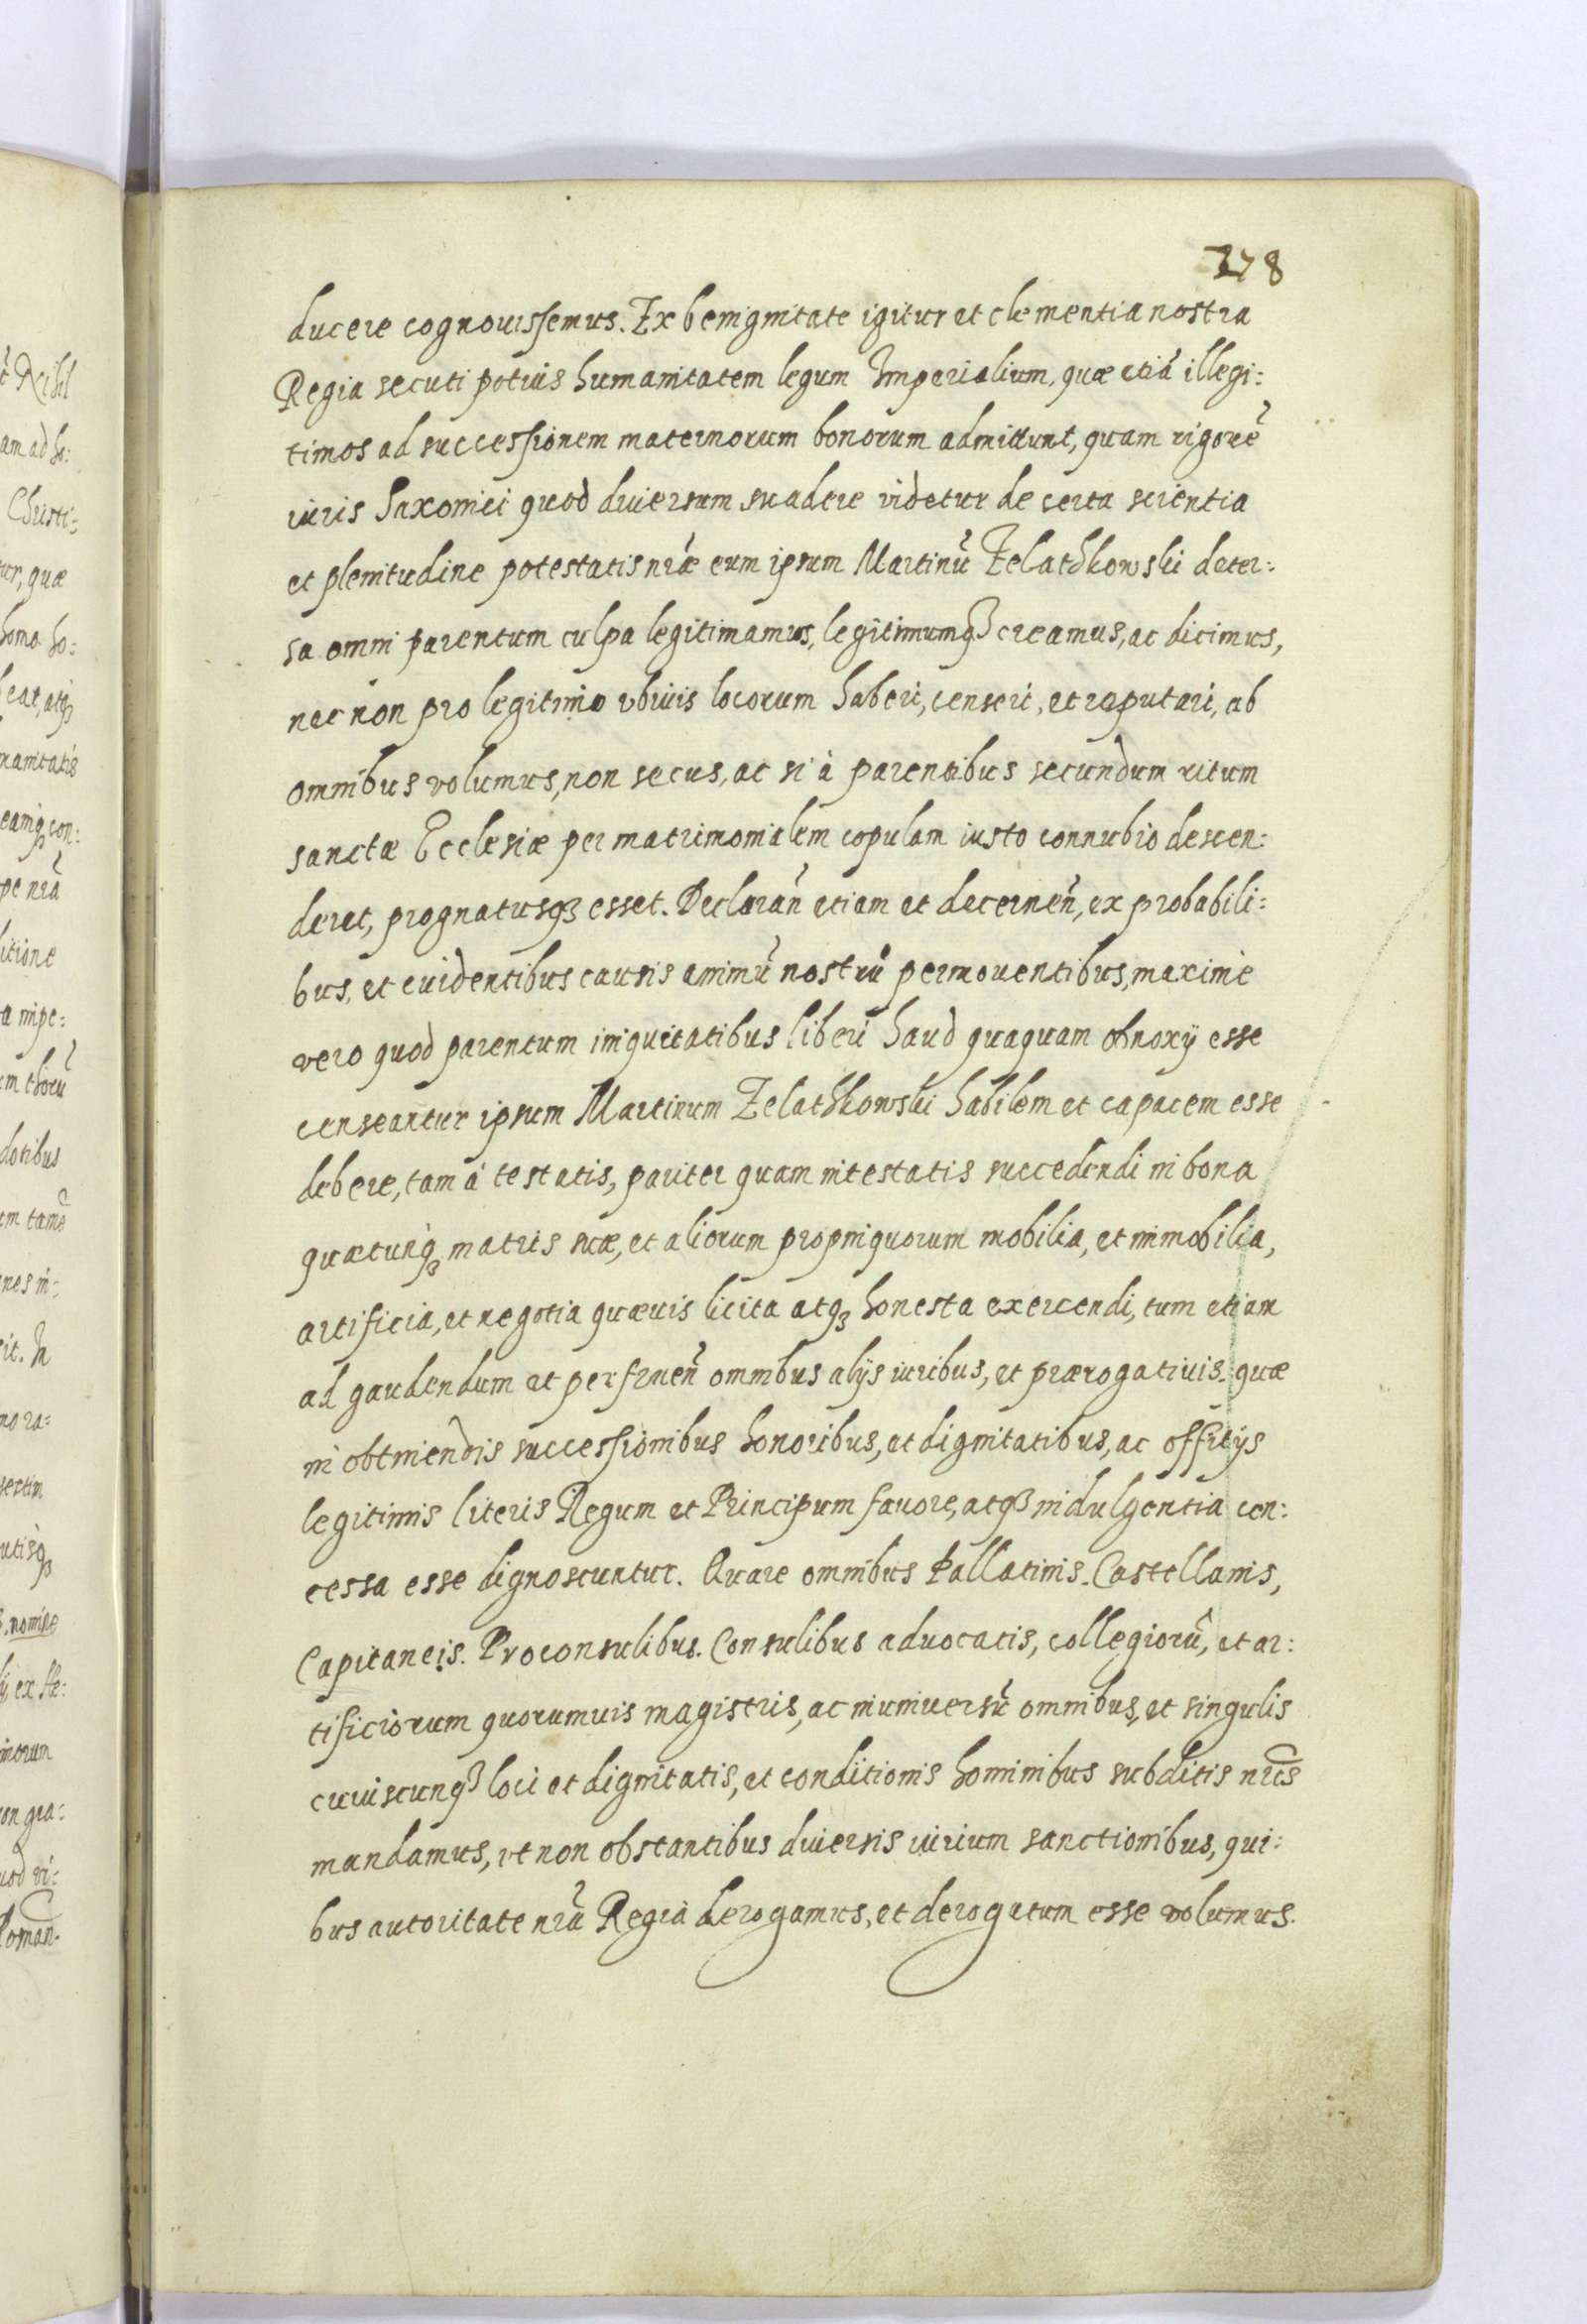 378
ducere cognouissemus. Ex benignitate igitur et clementia nostra
Regia secuti potius humanitatem legum Imperialium, quæ etiã illegi:
timos ad successionem maternorum bonorum admittunt, quam rigorẽ
iuris Saxonici quod diuersum suadere videtur de certa scientia
et plenitudine potestatis nr̃æ eum ipsum Martinũ Zelathkowski deter:
sa omni parentum culpa legitimamus, legitimumqꝫ creamus, ac dicimus,
necnon pro legitimo vbiuis locorum haberi, censeri, et reputari, ab
omnibus volumus, non secus, ac si à parentibus secundum ritum
sanctæ Ecclesiæ per matrimonialem copulam iusto connubio descen:
deret, prognatusqꝫ esset. Declarañ etiam et decerneñ, ex probabili:
bus, et euidentibus causis animũ nostrũ permouentibus, maximè
vero quod parentum iniquitatibus liberi haud quaquam obnoxij esse
censeantur ipsum Martinum Zelathkowski habilem et capacem esse
debere, tam à testatis, pariter quam intestatis succedendi in bona
quæcunqꝫ matris suæ, et aliorum propinquorum mobilia, et immobilia,
artificia, et negotia quæuis licita atqꝫ honesta exercendi, tum etiam
ad gaudendum et perfrueñ omnibus alijs iuribus, et prærogatiuis. quæ
in obtinendis successionibus honoribus, et dignitatibus, ac officijs
legitimis literis Regum et Principum fauore, atqꝫ indulgentia con:
cessa esse dignoscuntur. Quare omnibus Pallatinis. Castellanis,
Capitaneis. Proconsulibus. Consulibus aduocatis, collegiorũ, et ar:
tificiorum quorumuis magistris, ac inuniuersũ omnibus, et singulis
cuiuscunqꝫ loci et dignitatis, et conditionis hominibus subditis nr̃is
mandamus, vt non obstantibus diuersis iurium sanctionibus, qui:
bus autoritate nr̃a Regia derogamus, et derogatum esse volumus.